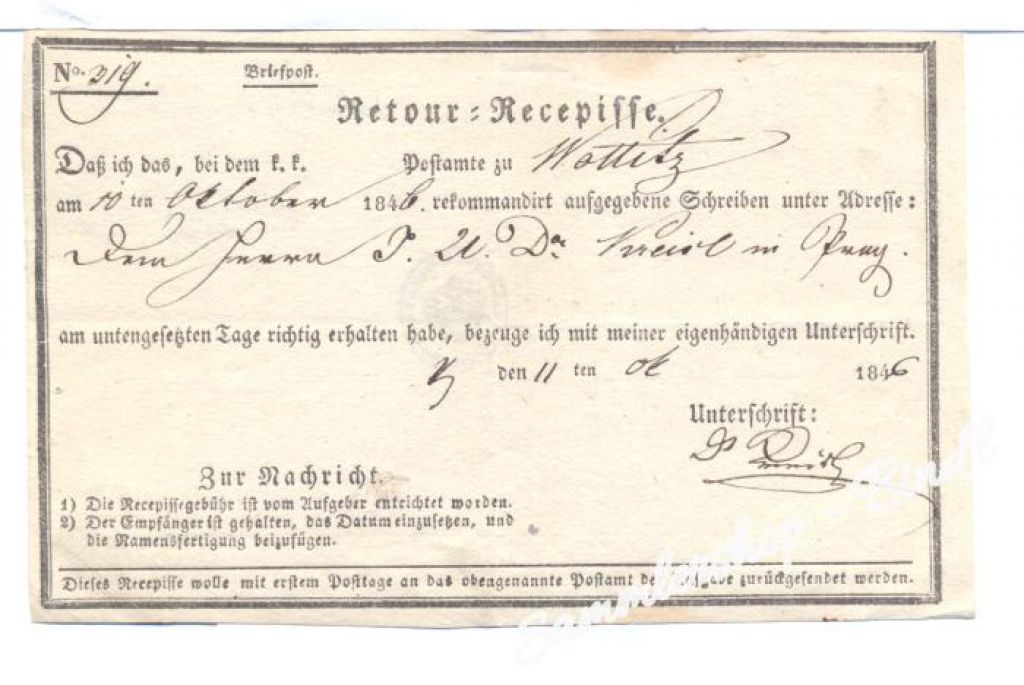 No. 319.
Briefpost.
Retour-Recepisse.
Daß ich das, bei dem k. k. Postamte zu Wottitz
am 10 ten Oktober 1846. rekommandirt aufgegebene Schreiben unter Adresse:
Dem Herrn J. U. Dr. Kreisl in Prag.
am untengesetzten Tage richtig erhalten habe, bezeuge ich mit meiner eigenhändigen Unterschrift.
den 11 ten Ok 1846
Unterschrift:
Dr
Zur Nachricht.
1) Die Recepissegebühr ist vom Aufgeber entrichtet worden.
2) Der Empfänger ist gehalten, das Datum einzusetzen, und
die Namensfertigung beizufügen.
Dieses Recepisse wolle mit erstem Posttage an das obengenannte Postamt der Aufgabe zurückgesendet werden.